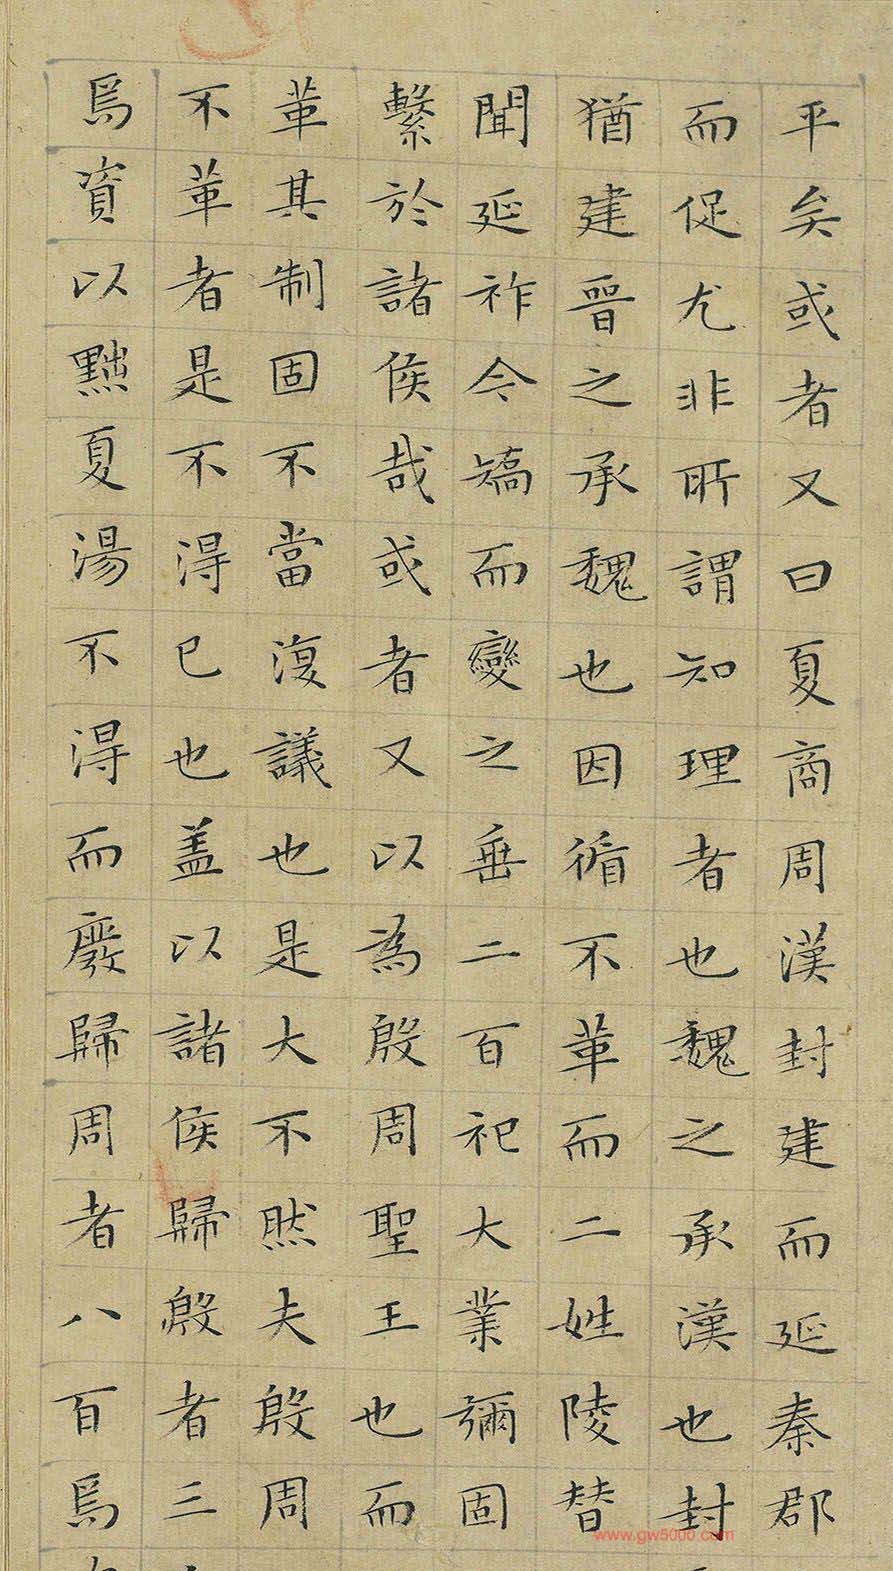 平矣或者又曰夏商周漢封建而延秦郡
而促尤非所謂知理者也魏之承漢也封
猶建晉之承魏也因循不革而二姓陵替
聞延祚今矯而變之垂二百祀大業彌固
繫於諸侯哉或者又以為殷周聖王也而
革其制固不當復議也是大不然夫殷周
不革者是不得已也盖以諸侯歸殷者三
焉資以黜夏湯不得而廢歸周者八百焉
www.gw5000.com